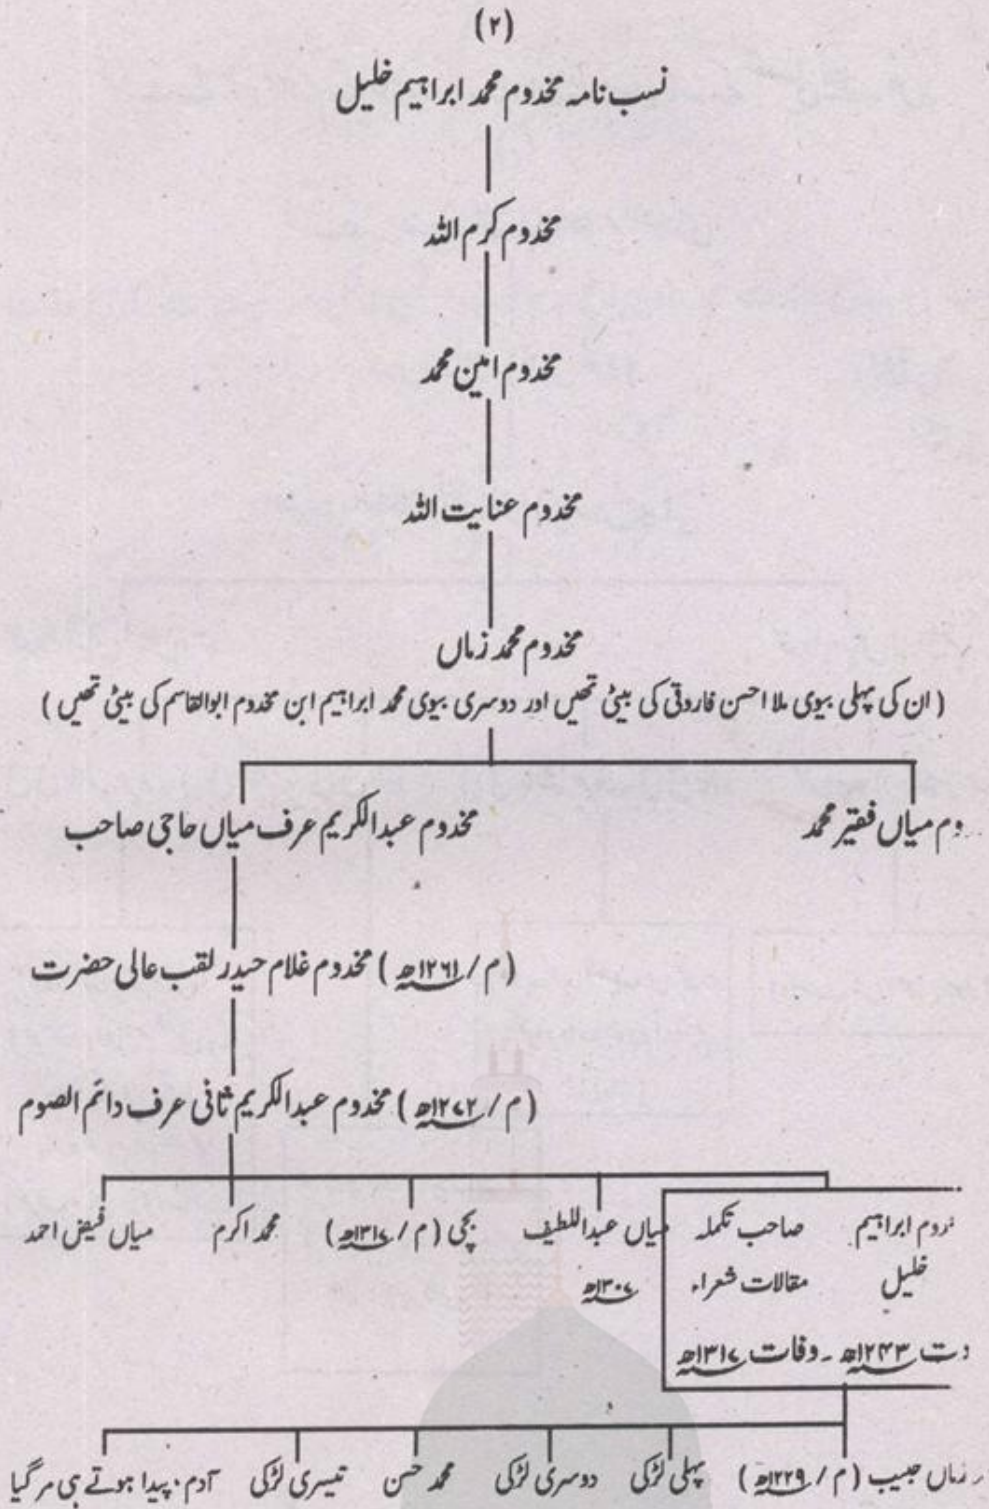 (۲)
نسب نامہ مخدوم محمد ابراہیم خلیل
مخدوم کرم اللہ
مخدوم امین محمد
مخدوم عنایت اللہ
مخدوم محمد زماں
( ان کی پہلی بیوی ملا احسن فاروقی کی بیٹی تھیں اور دوسری بیوی محمد ابراہیم ابن مخدوم ابوالقاسم کی بیٹی تھیں )
دم میاں فقیر محمد مخدوم عبدالکریم عرف میاں حاجی صاحب
(م / ۱۲۶۱ھ) مخدوم غلام حیدر لقب عالی حضرت
(م / ۱۲۷۲ھ) مخدوم عبدالکریم ثانی عرف دائم الصوم
دوم ابراہیم صاحب تکملہ میاں عبداللطیف بچی (م / ۱۳۱۷ھ) محمد اکرم میاں فیض احمد
خلیل مقالات شعراء ۱۳۰۷ھ
دت ۱۲۴۳ھ ۔ وفات ۱۳۱۷ھ
ر زماں حبیب (م / ۱۲۲۹ھ) پہلی لڑکی دوسری لڑکی محمد حسن تیسری لڑکی آدم، پیدا ہوتے ہی مر گیا